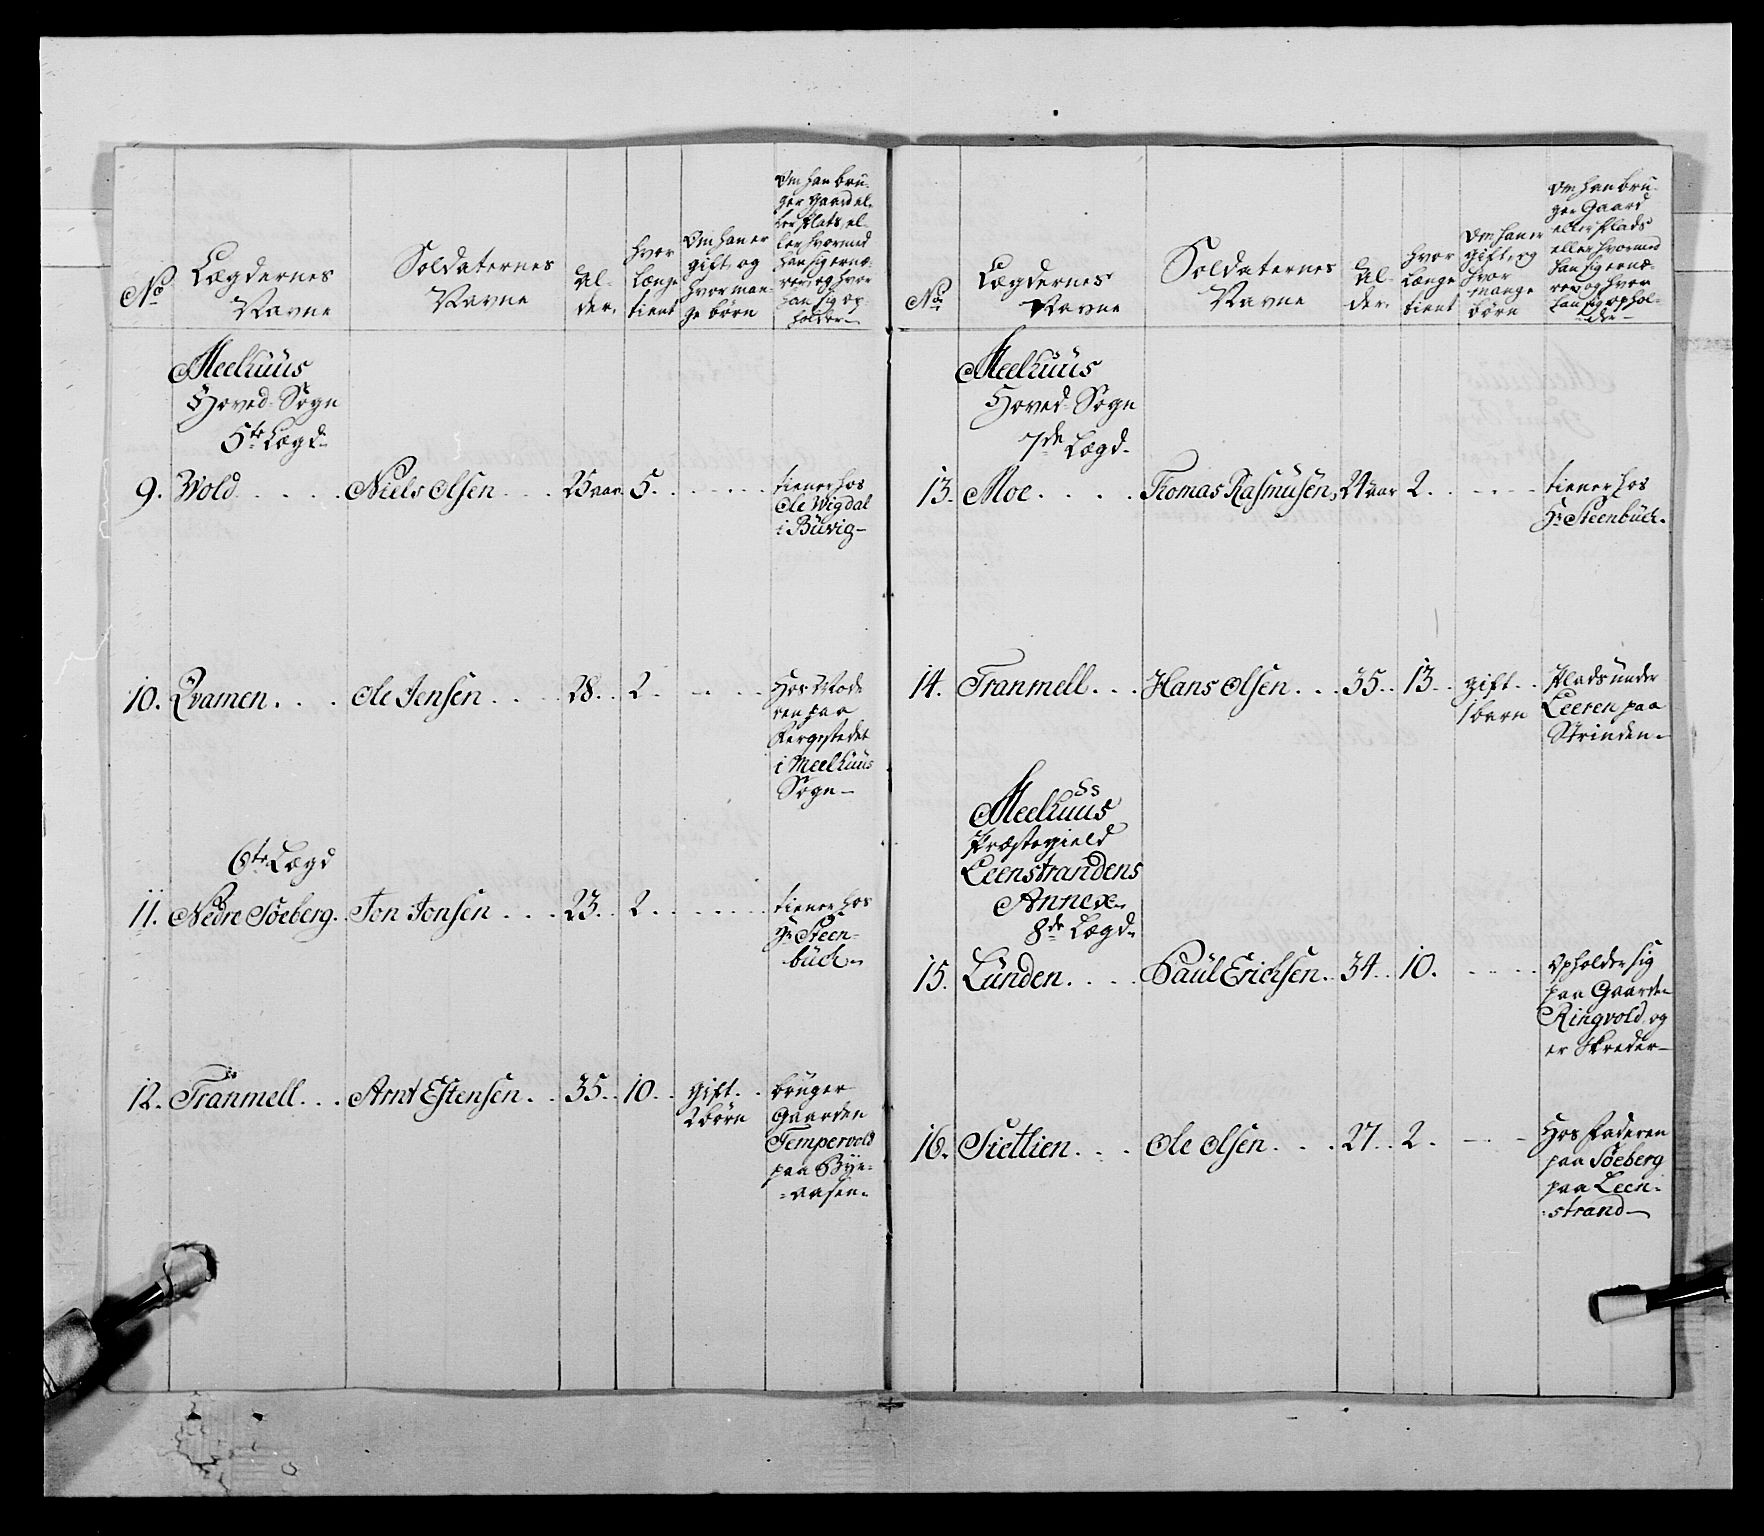 No
Lægdernes
Navne
Soldaternes
Navne
Al-
der.
hvor
længe
tient
Om han er
gift, og
hvor man-
ge børn
Om han bru-
ger gaard el-
ler Plats, el-
ler hvormed
han sig ernæ-
rer, og hvor
han sig op-
holder
Meelhuus
Hoved-Sogn
5te Lægd
9. Wold . . . . Niels Olsen . . . 25 aar 5. . . . . . tiener hos
Ole Wigdal
i Büvig
10. Qvamen. . . . Ole Jensen . . . . 28. . 2. . . . Hos Mode
ren paa
i Meelhuus
Sogn
6te Lægd
11. Nedre Söeberg. Jon Jonsen . . . 23. . 2. . . . . . tiener hos
Hr Steen-
büch
12. Tranmell. . . Arnt Estensen. . 35. . 10. . gift. . bruger
2 børn Gaarden
Tempervold
paa Bye-
-aasen
No
Lægdernes
Navne
Soldaternes
Navne
Al-
der.
hvor
længe
tient
Om han er
gift, og
hvor
mange
børn
Om han bru-
ger Gaard
eller Plads
eller hvormed
han sig ernæ-
rer, og hvor
han sig ophol-
der
Meelhuus
Hoved-Sogn
7de Lægd.
13. Moe. . . . Thomas Rasmüsen, 24 aar 2. . . . . tiener hos
Hr Steenbüch.
14. Tranmell. . . Hans Olsen. . . 35. . 13. . gift . . Plads under
1 barn Leeren paa
Strinden
Meelhuus
Præstegield
Leenstrandens
Annex
8de Lægd
15. Lünden. . . . Paül Erichsen. . 34. . 10. . . . . Opholder sig
paa Gaarden
Ringvold, og
er Skreder
16. Sietlien. . . Ole Olsen. . . . 27. . 2. . . . Hos Faderen
paa Söeberg
paa Leen-
strand